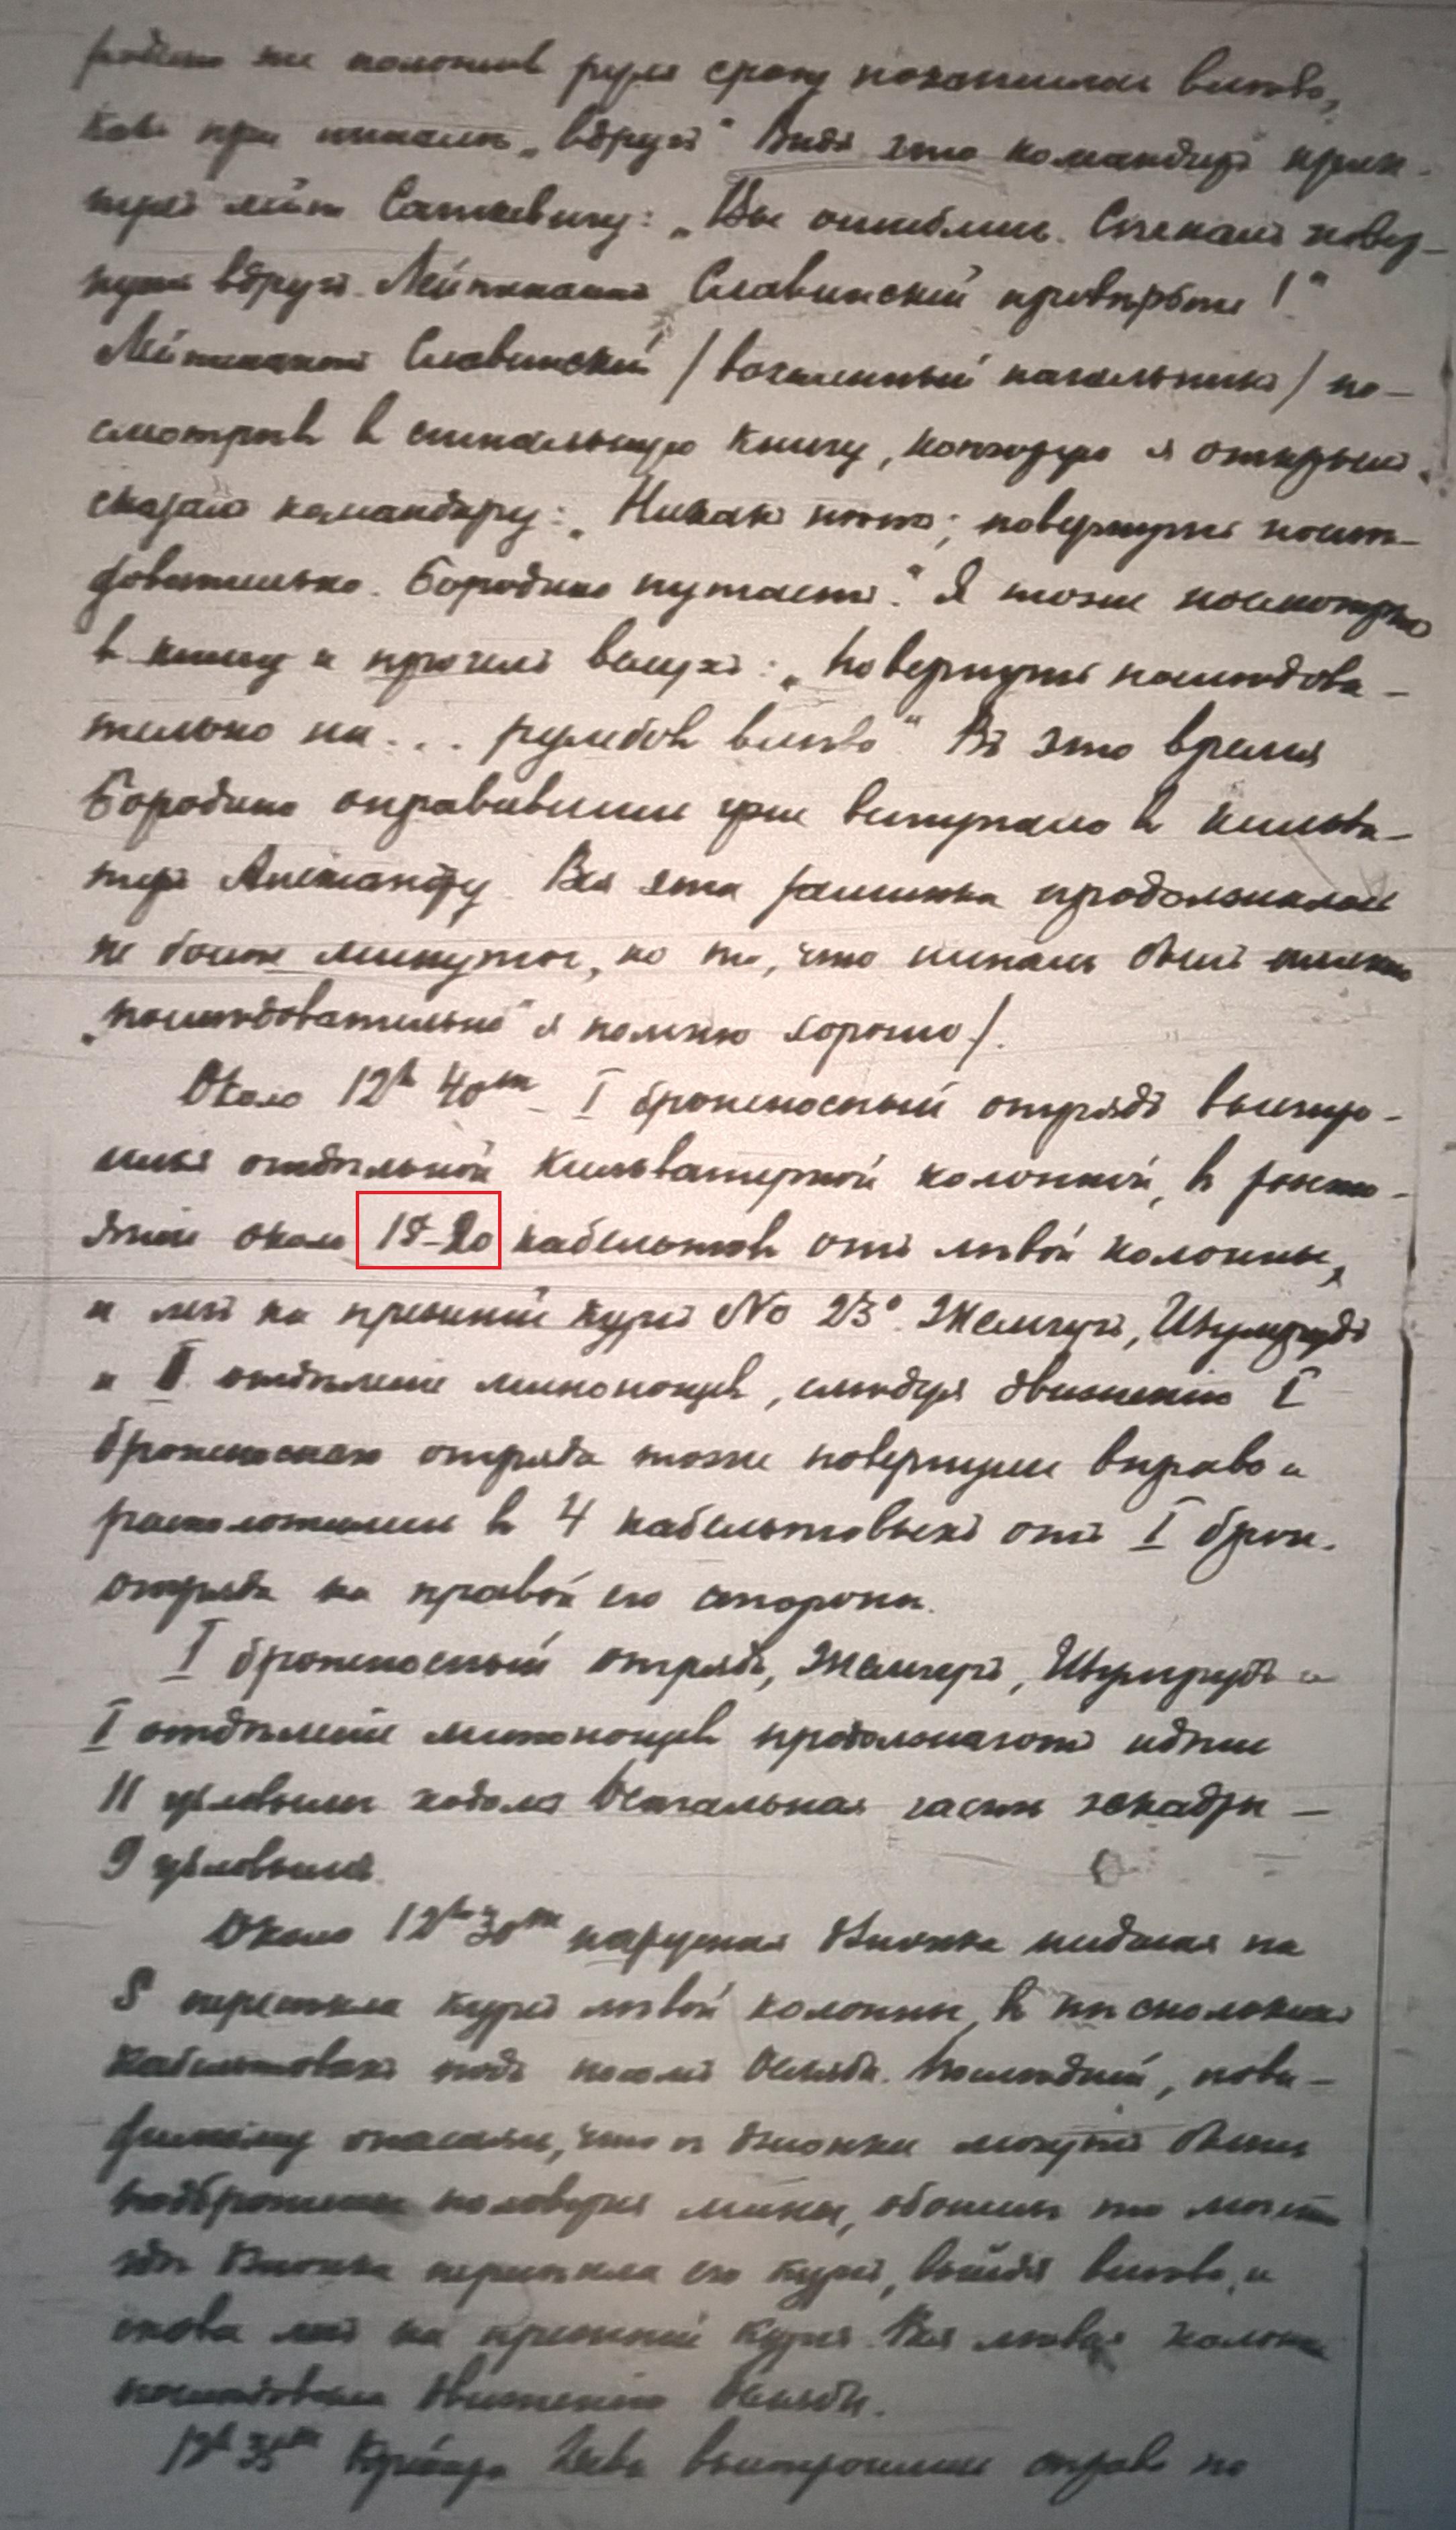 же положив руля сразу покатился влево,
как при сигнале „вдруг“ Видя это командир крик-
нул лейт Саткевичу: „Вы ошиблись. Сигнал повер-
нуть вдруг. Лейтенант Славинский проверьте!“
Лейтенант Славинский /вахтенный начальник/ по-
смотрев в сигнальную книгу, которую я открыл
сказал командиру: „Никак нѣтъ; повернуть послѣ-
довательно. Бородино путаетъ.“ Я тоже посмотрѣлъ
в книгу и прочелъ вслухъ: „Повернуть послѣдова-
тельно на... румбов влѣво“ Въ это время
Бородино оправившись уже вступало в кильва-
теръ Александру Вся эта заминка продолжалась
не болѣе минуты, но то, что сигналъ былъ
„послѣдовательно“ я помню хорошо/.
Около 12h 40m I броненосный отрядъ выстро-
ился отдѣльной кильватерной колонной, в разсто-
янiи около 15-20 кабельтов отъ лѣвой колонны,
и легъ на прежнiй курсъ NO 23° Жемчугъ, Изумрудъ
и II отдѣленiе миноносцев, слѣдуя движенiю I
броненоснаго отряда тоже повернули вправо и
расположились в 4 кабельтовыхъ отъ I брон.
отряда на правой его сторонѣ.
I броненосный отрядъ, Жемчугъ, Изумрудъ и
I отдѣленiе миноносцев продолжаютъ идти
11 узловымъ ходомъ Остальная часть эскадры —
9 узловымъ.
Около 12h 30m парусная джонка шедшая на
S пересѣкла курсъ лѣвой колонны, в нѣсколькихъ
кабельтовахъ подъ носомъ Осляби. Послѣднiй, пови-
димому опасаясь, что с джонки могутъ быть
подброшены плавучiя мины, обошелъ то мѣсто
гдѣ джонка пересѣкла его курсъ, выйдя влѣво, и
снова легъ на прежнiй курсъ Вся лѣвая колонна
послѣдовала движенiю Осляби.
12h 35m Крейсера выстроились справа по